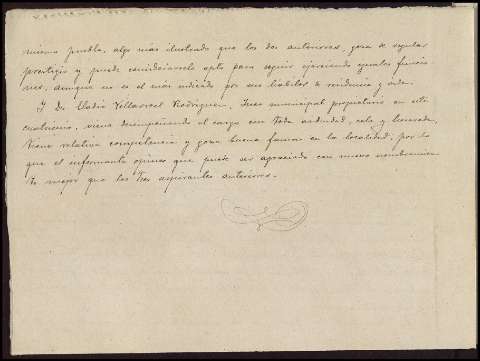 mismo pueblo, algo más ilustrado que los dos anteriores, goza de regular
prestigio y puede considerársele apto para seguir ejerciendo iguales funcio-
nes, aunque no es el más indicado por sus hábitos de residencia y vida.
Y Dn Eladio Villarroel Rodríguez, Juez municipal propietario en este
cuatrienio, viene desempeñando el cargo con toda actividad, celo y honradez,
tiene relativa competencia y goza buena fama en la localidad; por lo
que el informante opina que puede ser agraciado con nuevo nombramien-
to mejor que los tres aspirantes anteriores.